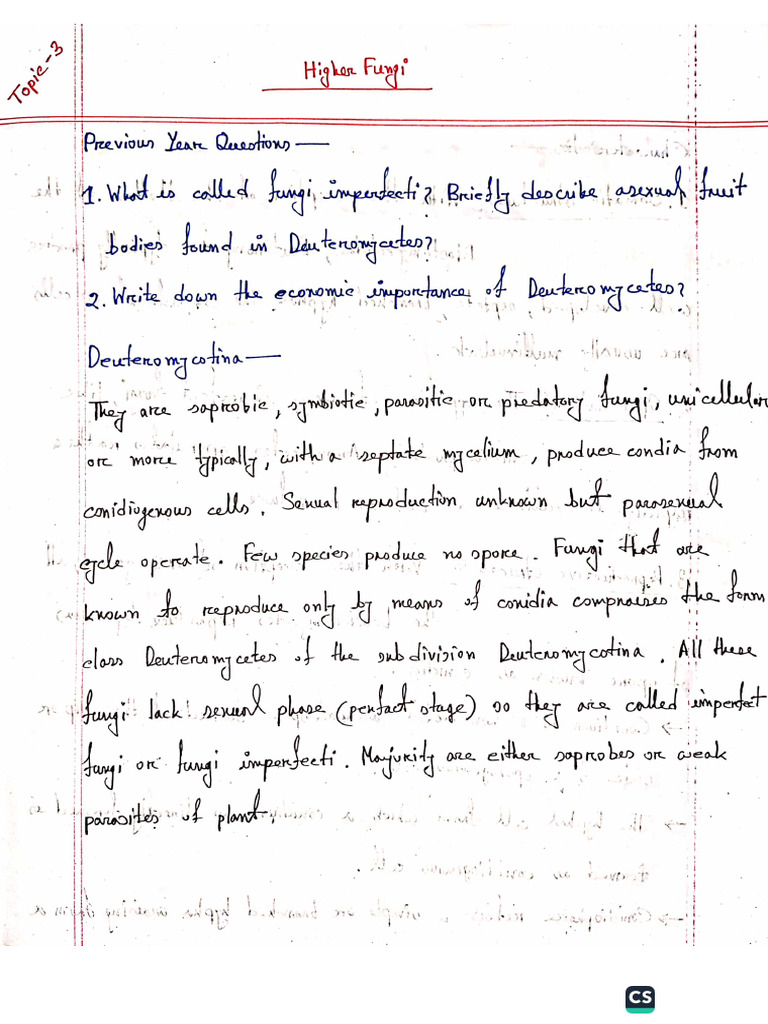 Topic-3
Higher Fungi
Previous Year Questions —
1. What is called fungi imperfecti? Briefly describe asexual fruit
bodies found in Deuteromycetes?
2. Write down the economic importance of Deuteromycetes?
Deuteromycotina —
They are saprobic, symbiotic, parasitic or predatory fungi, unicellular
or more typically, with a septate mycelium, produce condia from
conidiogenous cells. Sexual reproduction unknown but parasexual
cycle operate. Few species produce no spore. Fungi that are
known to reproduce only by means of conidia compraises the form
class Deuteromycetes of the subdivision Deuteromycotina. All these
fungi lack sexual phase (perfact stage) so they are called imperfect
fungi or fungi imperfecti. Majurity are either saprobes or weak
parasites of plant.
CS